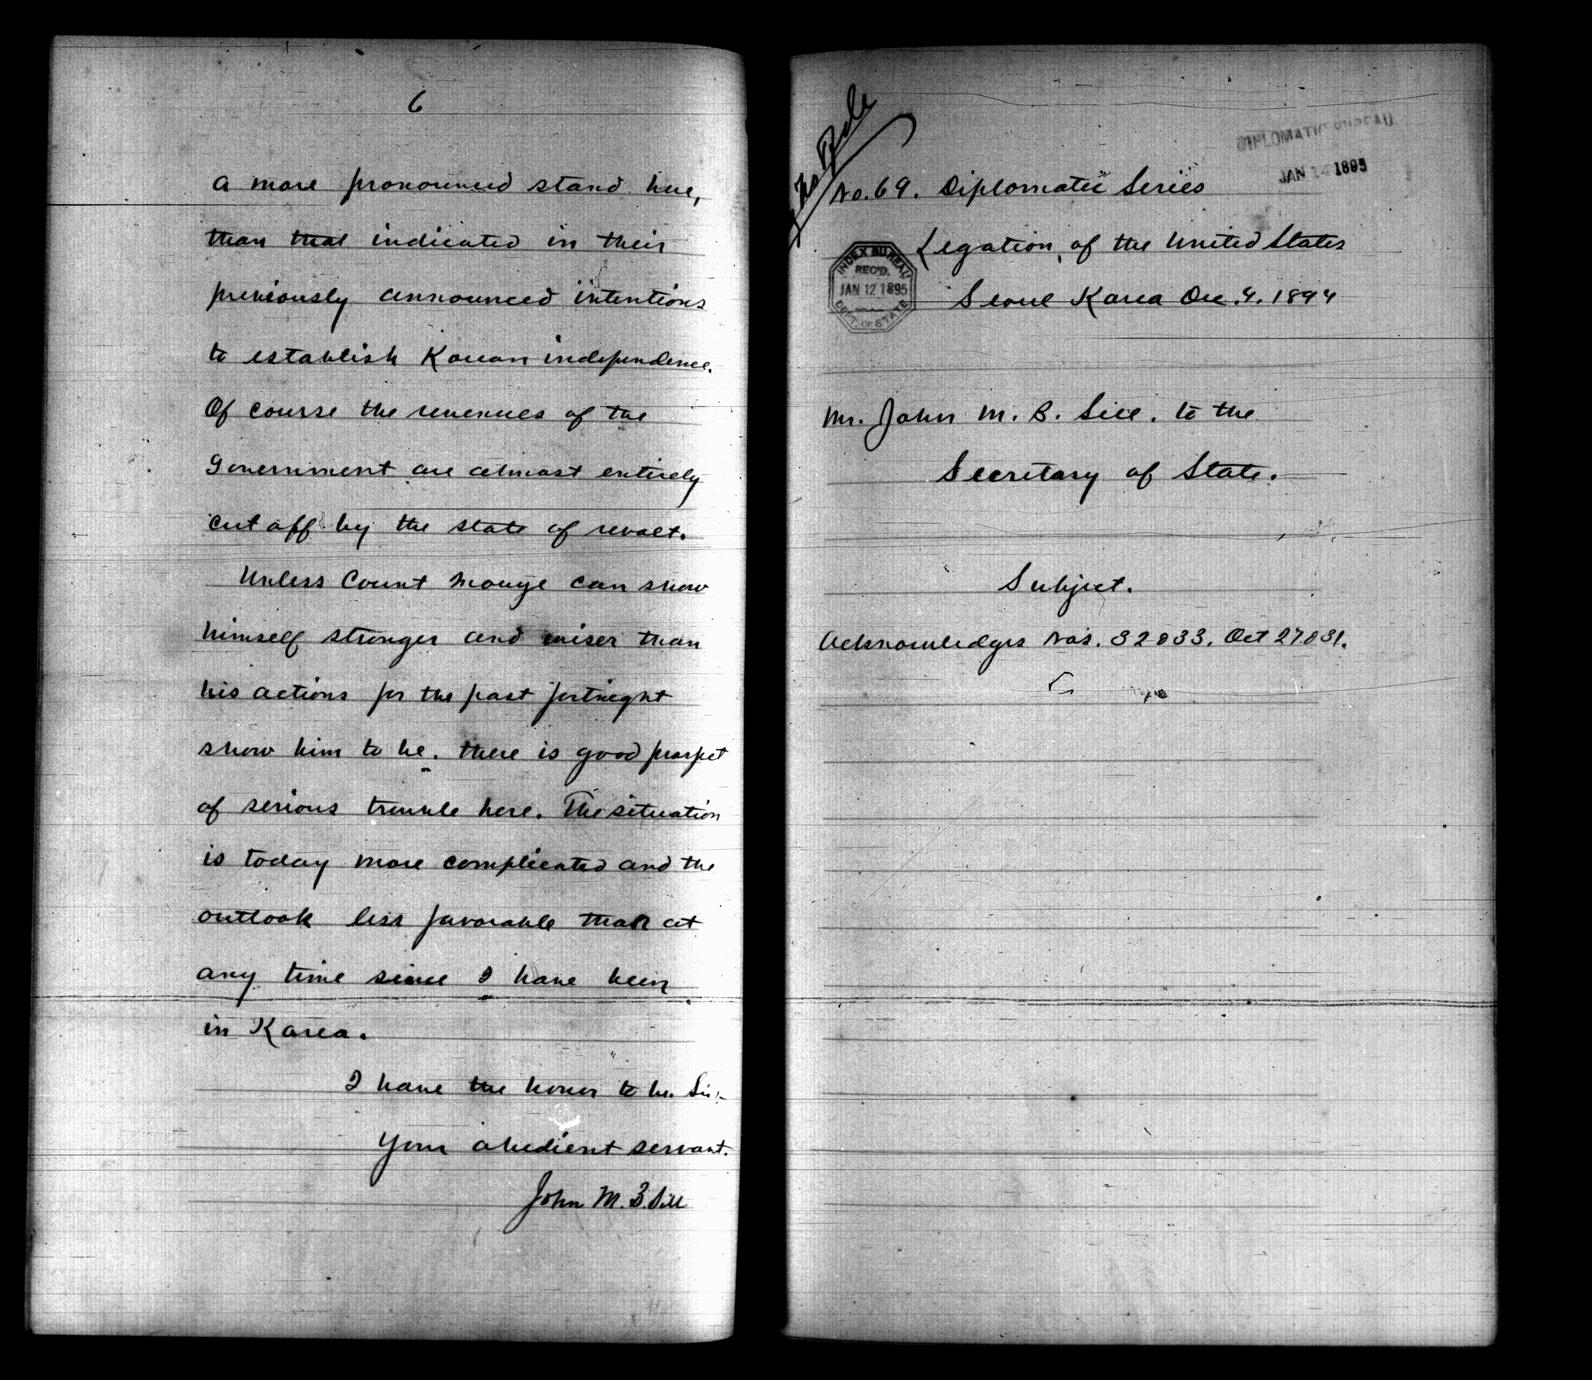 6
a more pronounced stand here,
than that indicated in their
previously announced intentions
to establish Korean independence.
Of course the revenues of the
Government are almost entirely
cut off by the state of revolt.
Unless Count Inouye can show
himself stronger and wiser than
his actions for the past fortnight
show him to be, there is good prospect
of serious trouble here. The situation
is today more complicated and the
outlook less favorable than at
any time since I have been
in Korea.
I have the honor to be Sir:-
Your obedient servant.
John M. B. Sill
DIPLOMATIC BUREAU
JAN 14 1895
No. 69. Diplomatic Series
Legation of the United States
Seoul Korea Dec. 4. 1894
INDEX BUREAU
REC'D.
JAN 12 1895
DEPT. OF STATE
Mr. John M. B. Sill. to the
Secretary of State.
Subject.
Acknowledges Nos. 32 & 33, Oct 27 & 31.